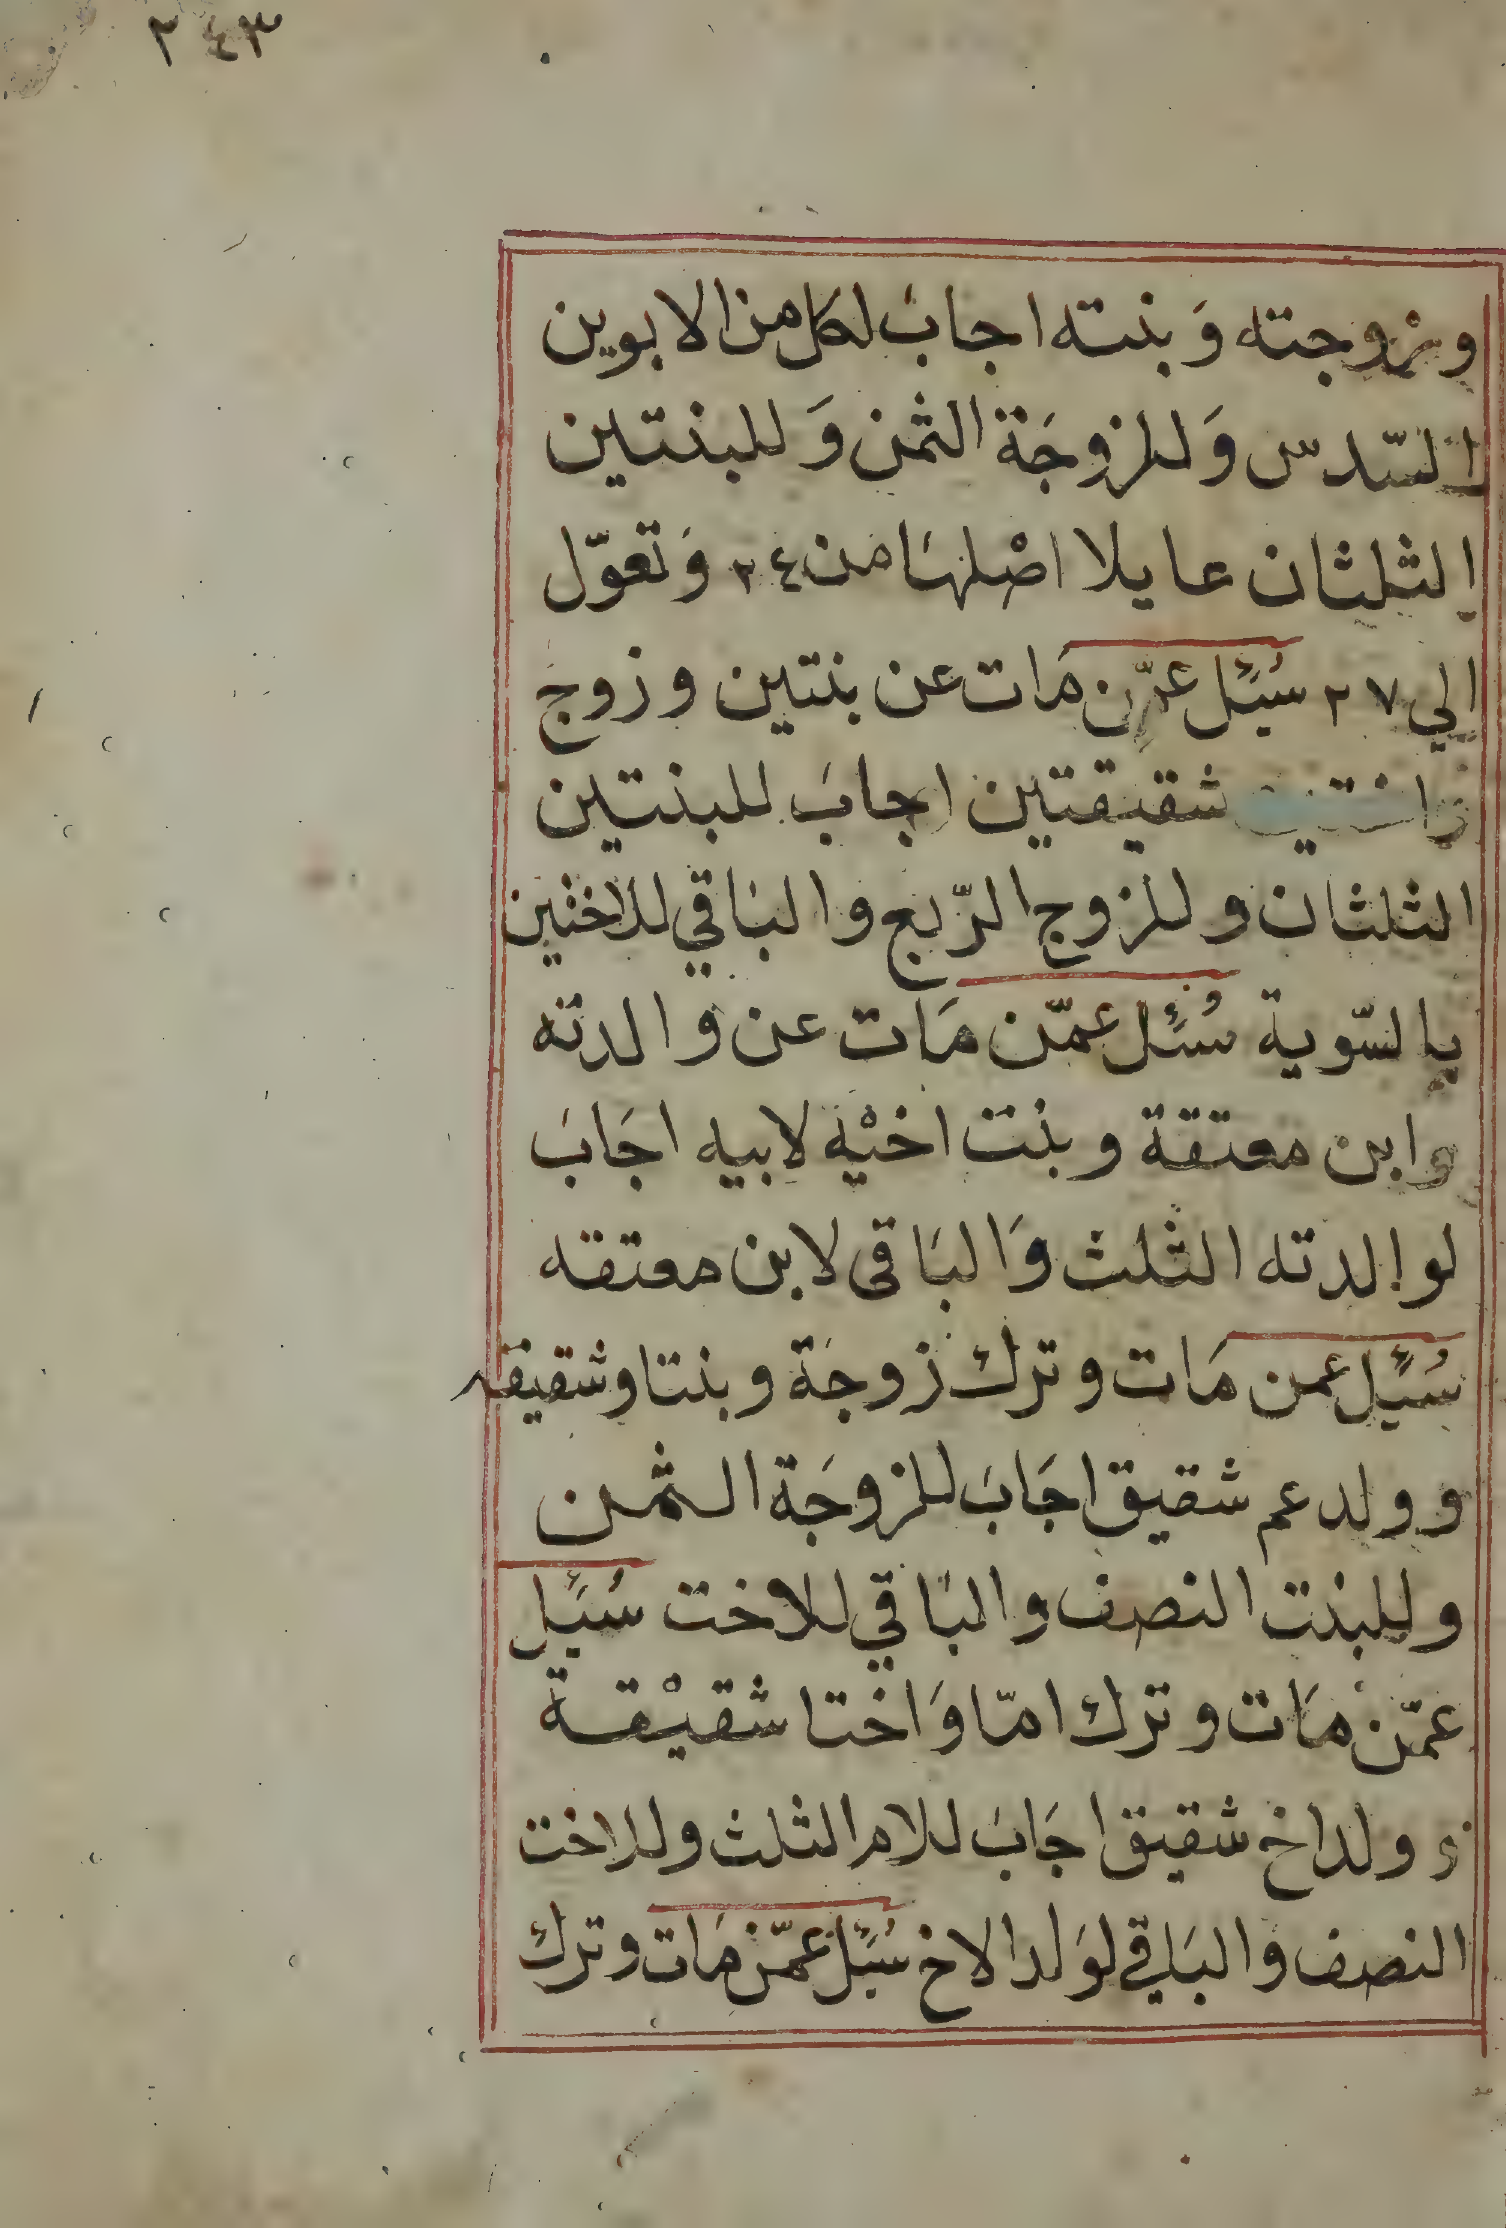 ٢٤٣
وزوجته وَبنته اجابَ لكل من الابوين
السّدس وَللزوجَة الثمن وَللبنتين
الثلثان عايلا اصْلهَا من ٢٤ وَتعوّل
الي ٢٧ سُئِل عمّن مَات عن بنتين وزوج
واختين شقيقتين اجابَ للبنتين
الثلثان وللزوج الرّبع والبَاقي للاختين
بالسّوية سُئِل عمّن مَات عن والدته
وابن معتقة وبنت اخيْه لابيه اجَابَ
لوالدته الثلث وَالبَاقى لابن معتقه
سُئِل عمن مَات وترك زوجَة وبنتا وشقيقه
وولد عم شقيق اجَابَ للزوجَة الثمن
وللبنت النصف والبَاقي للاخت سُئِل
عمّن مَات وترك امّا وَاختا شقيْقة
وولد اخ شقيق اجَابَ للام الثلث وللاخت
النصف والبَاقي لوَلد الاخ سُئِل عمّن مَات وترك